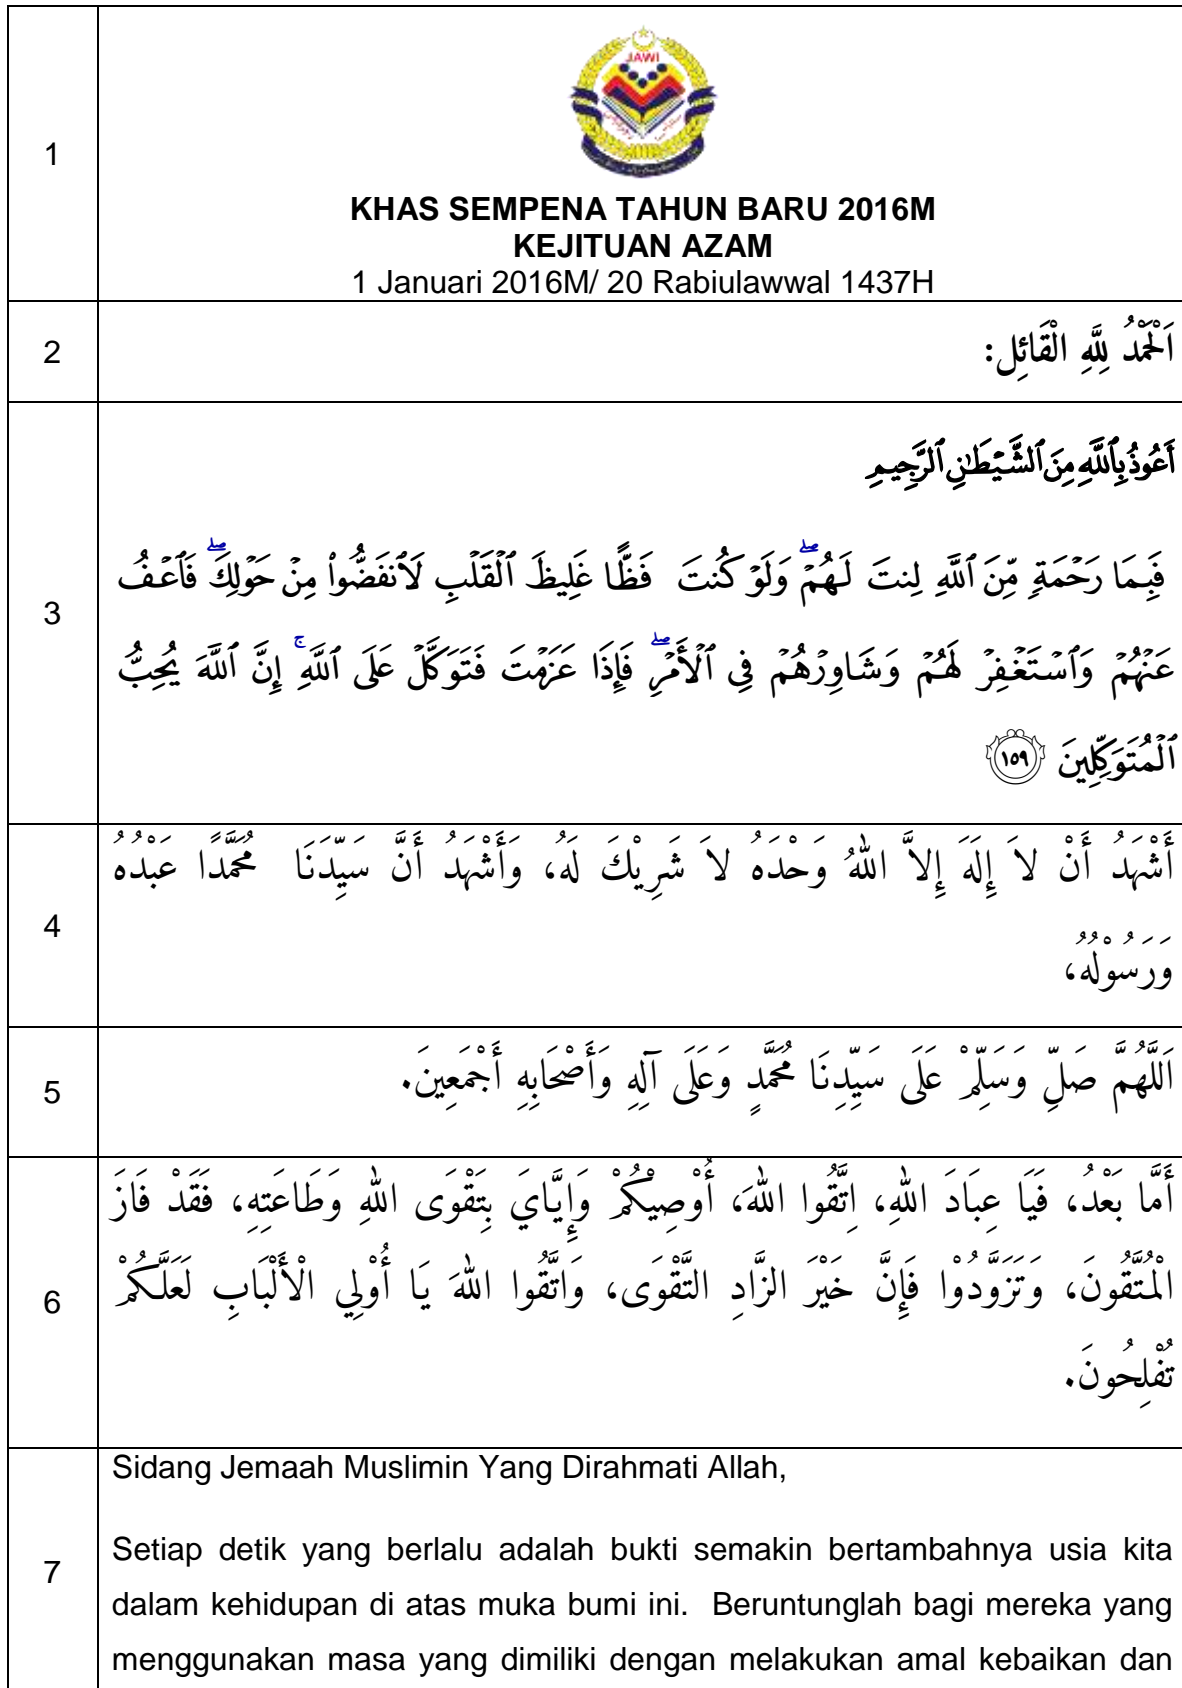 1
JAWI
KHAS SEMPENA TAHUN BARU 2016M
KEJITUAN AZAM
1 Januari 2016M/ 20 Rabiulawwal 1437H
2
اَلْحَمْدُ لِلَّهِ الْقَائِل:
3
أَعُوذُ بِٱللَّهِ مِنَ ٱلشَّيْطَٰنِ ٱلرَّجِيمِ
فَبِمَا رَحْمَةٍ مِّنَ ٱللَّهِ لِنتَ لَهُمْ ۖ وَلَوْ كُنتَ فَظًّا غَلِيظَ ٱلْقَلْبِ لَٱنفَضُّوا۟ مِنْ حَوْلِكَ ۖ فَٱعْفُ
عَنْهُمْ وَٱسْتَغْفِرْ لَهُمْ وَشَاوِرْهُمْ فِي ٱلْأَمْرِ ۖ فَإِذَا عَزَمْتَ فَتَوَكَّلْ عَلَى ٱللَّهِ ۚ إِنَّ ٱللَّهَ يُحِبُّ
ٱلْمُتَوَكِّلِينَ ﴿١٥٩﴾
4
أَشْهَدُ أَنْ لاَ إِلَهَ إِلاَّ اللهُ وَحْدَهُ لاَ شَرِيْكَ لَهُ، وَأَشْهَدُ أَنَّ سَيِّدَنَا مُحَمَّدًا عَبْدُهُ
وَرَسُوْلُهُ،
5
اَللَّهُمَّ صَلِّ وَسَلِّمْ عَلَى سَيِّدِنَا مُحَمَّدٍ وَعَلَى آلِهِ وَأَصْحَابِهِ أَجْمَعِينَ.
6
أَمَّا بَعْدُ، فَيَا عِبَادَ اللهِ، اِتَّقُوا اللهَ، أُوْصِيْكُمْ وَإِيَّايَ بِتَقْوَى اللهِ وَطَاعَتِهِ، فَقَدْ فَازَ
الْمُتَّقُونَ، وَتَزَوَّدُوْا فَإِنَّ خَيْرَ الزَّادِ التَّقْوَى، وَاتَّقُوا اللهَ يَا أُوْلِي الْأَلْبَابِ لَعَلَّكُمْ
تُفْلِحُونَ.
7
Sidang Jemaah Muslimin Yang Dirahmati Allah,
Setiap detik yang berlalu adalah bukti semakin bertambahnya usia kita
dalam kehidupan di atas muka bumi ini.  Beruntunglah bagi mereka yang
menggunakan masa yang dimiliki dengan melakukan amal kebaikan dan